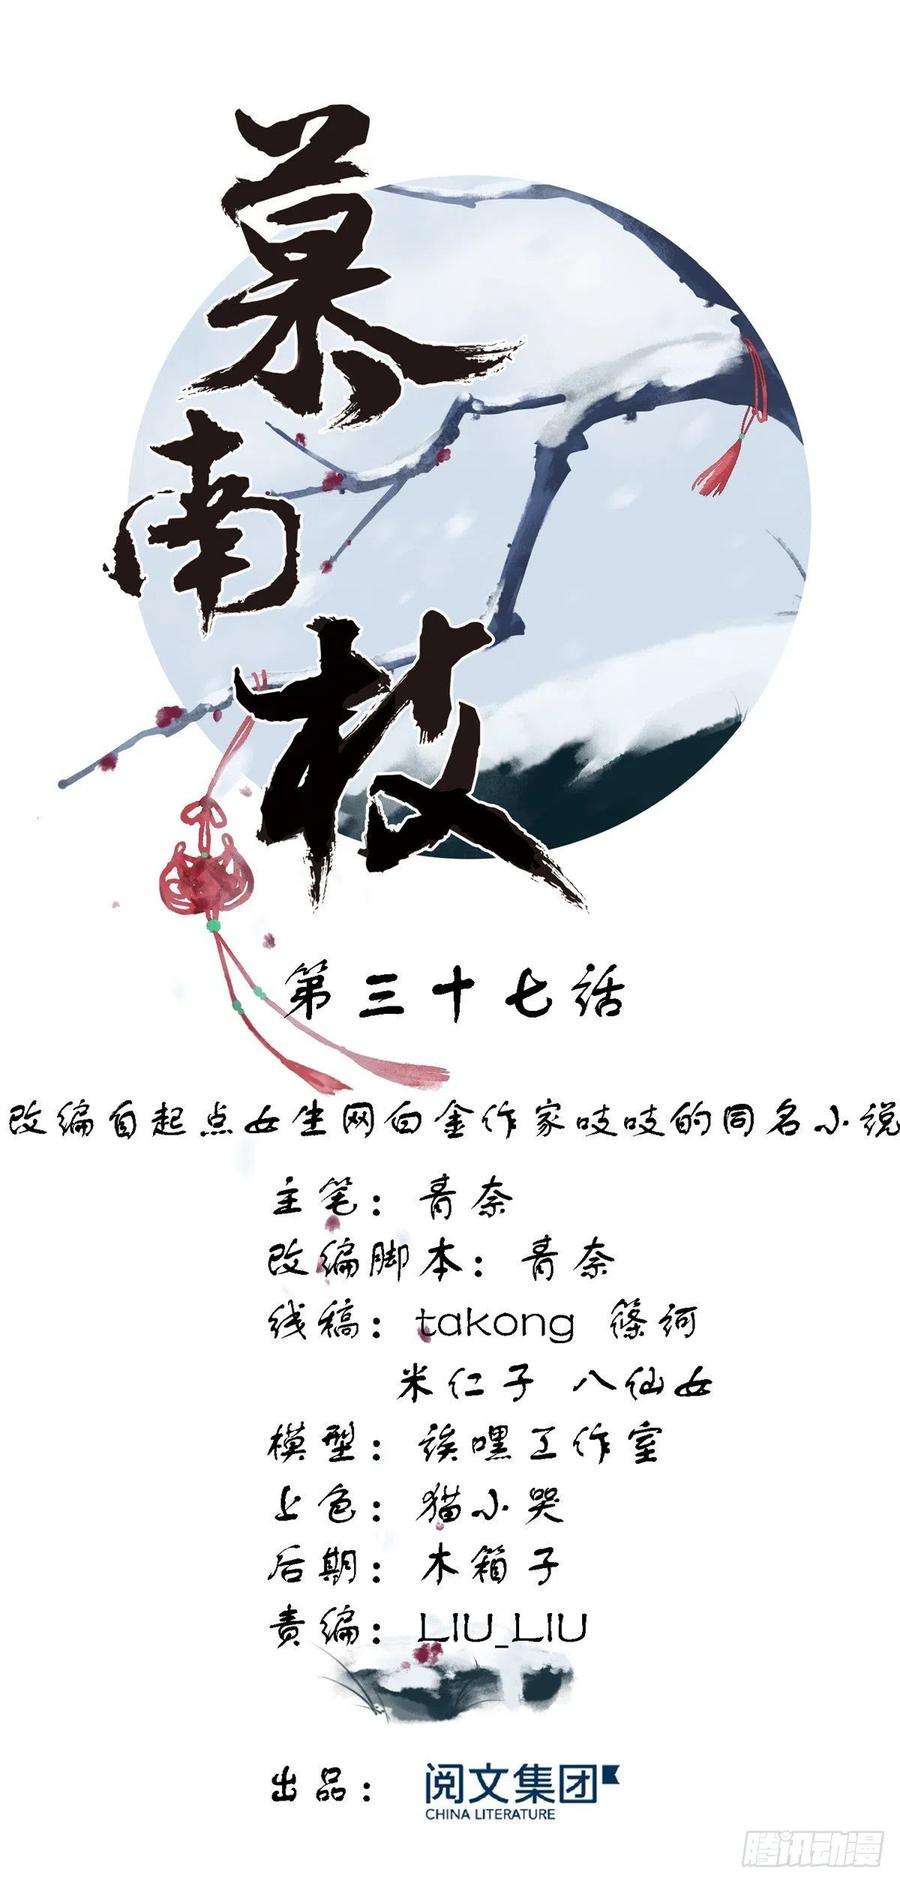 慕南枝
第三十七话
改编自起点女生网白金作家吱吱的同名小说
主笔：青奈
改编脚本：青奈
线稿：takong 篠河
米仁子 八仙女
模型：诶嘿工作室
上色：猫小哭
后期：木箱子
责编：LIU_LIU
出品：阅文集团
CHINA LITERATURE
腾讯动漫